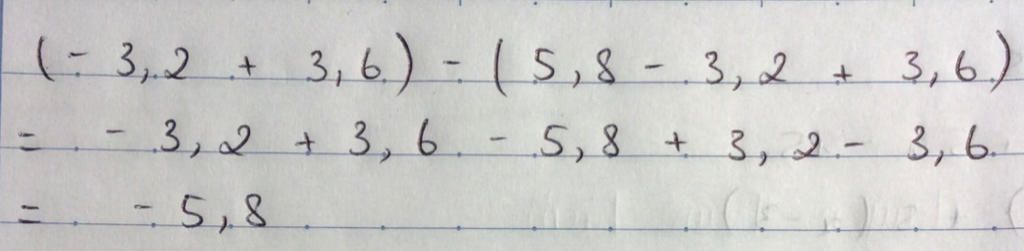 (- 3,2 + 3,6) - (5,8 - 3,2 + 3,6)
= - 3,2 + 3,6 - 5,8 + 3,2 - 3,6
= - 5,8